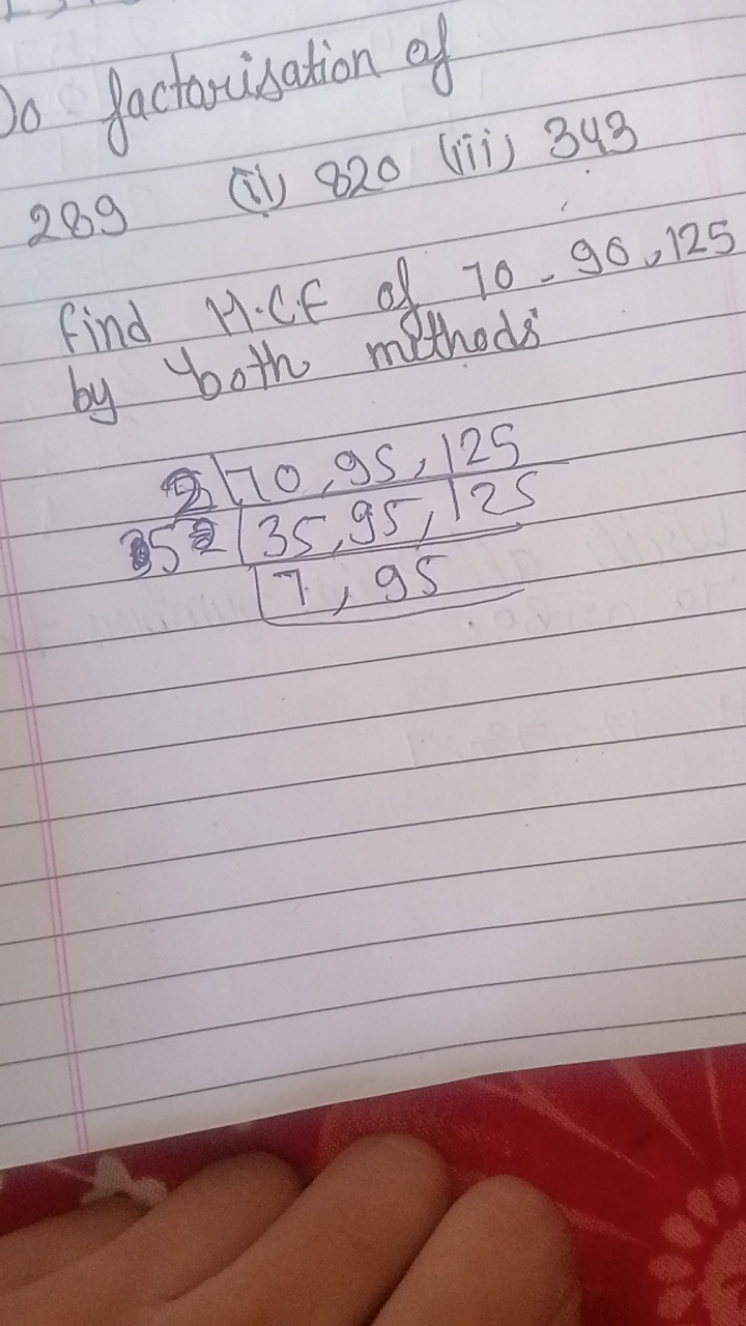 Do factorisation of
289 (ii) 820 (iii) 343
find H.C.F of 70, 90, 125
by both methods
2 70, 95, 125
5 35, 95, 125
7, 95